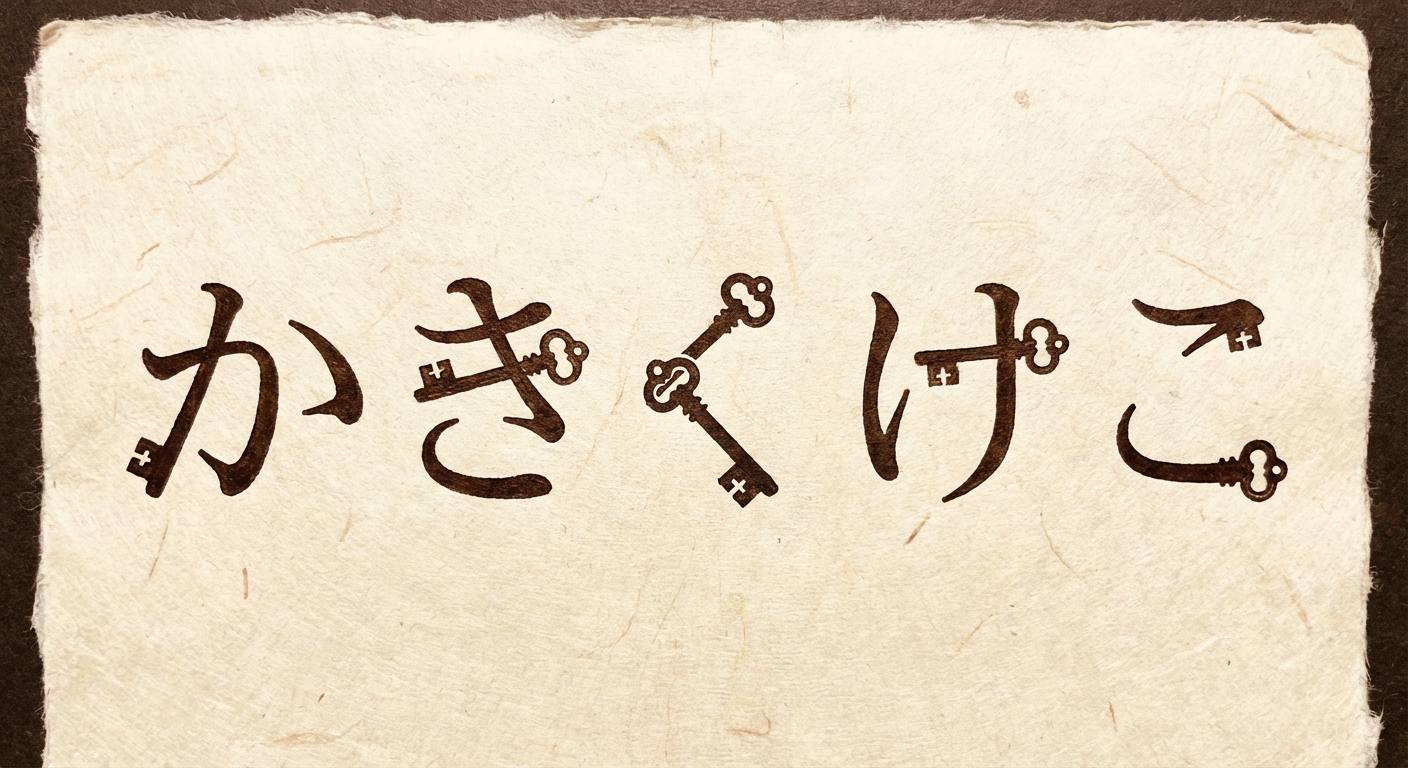 かきくけこ